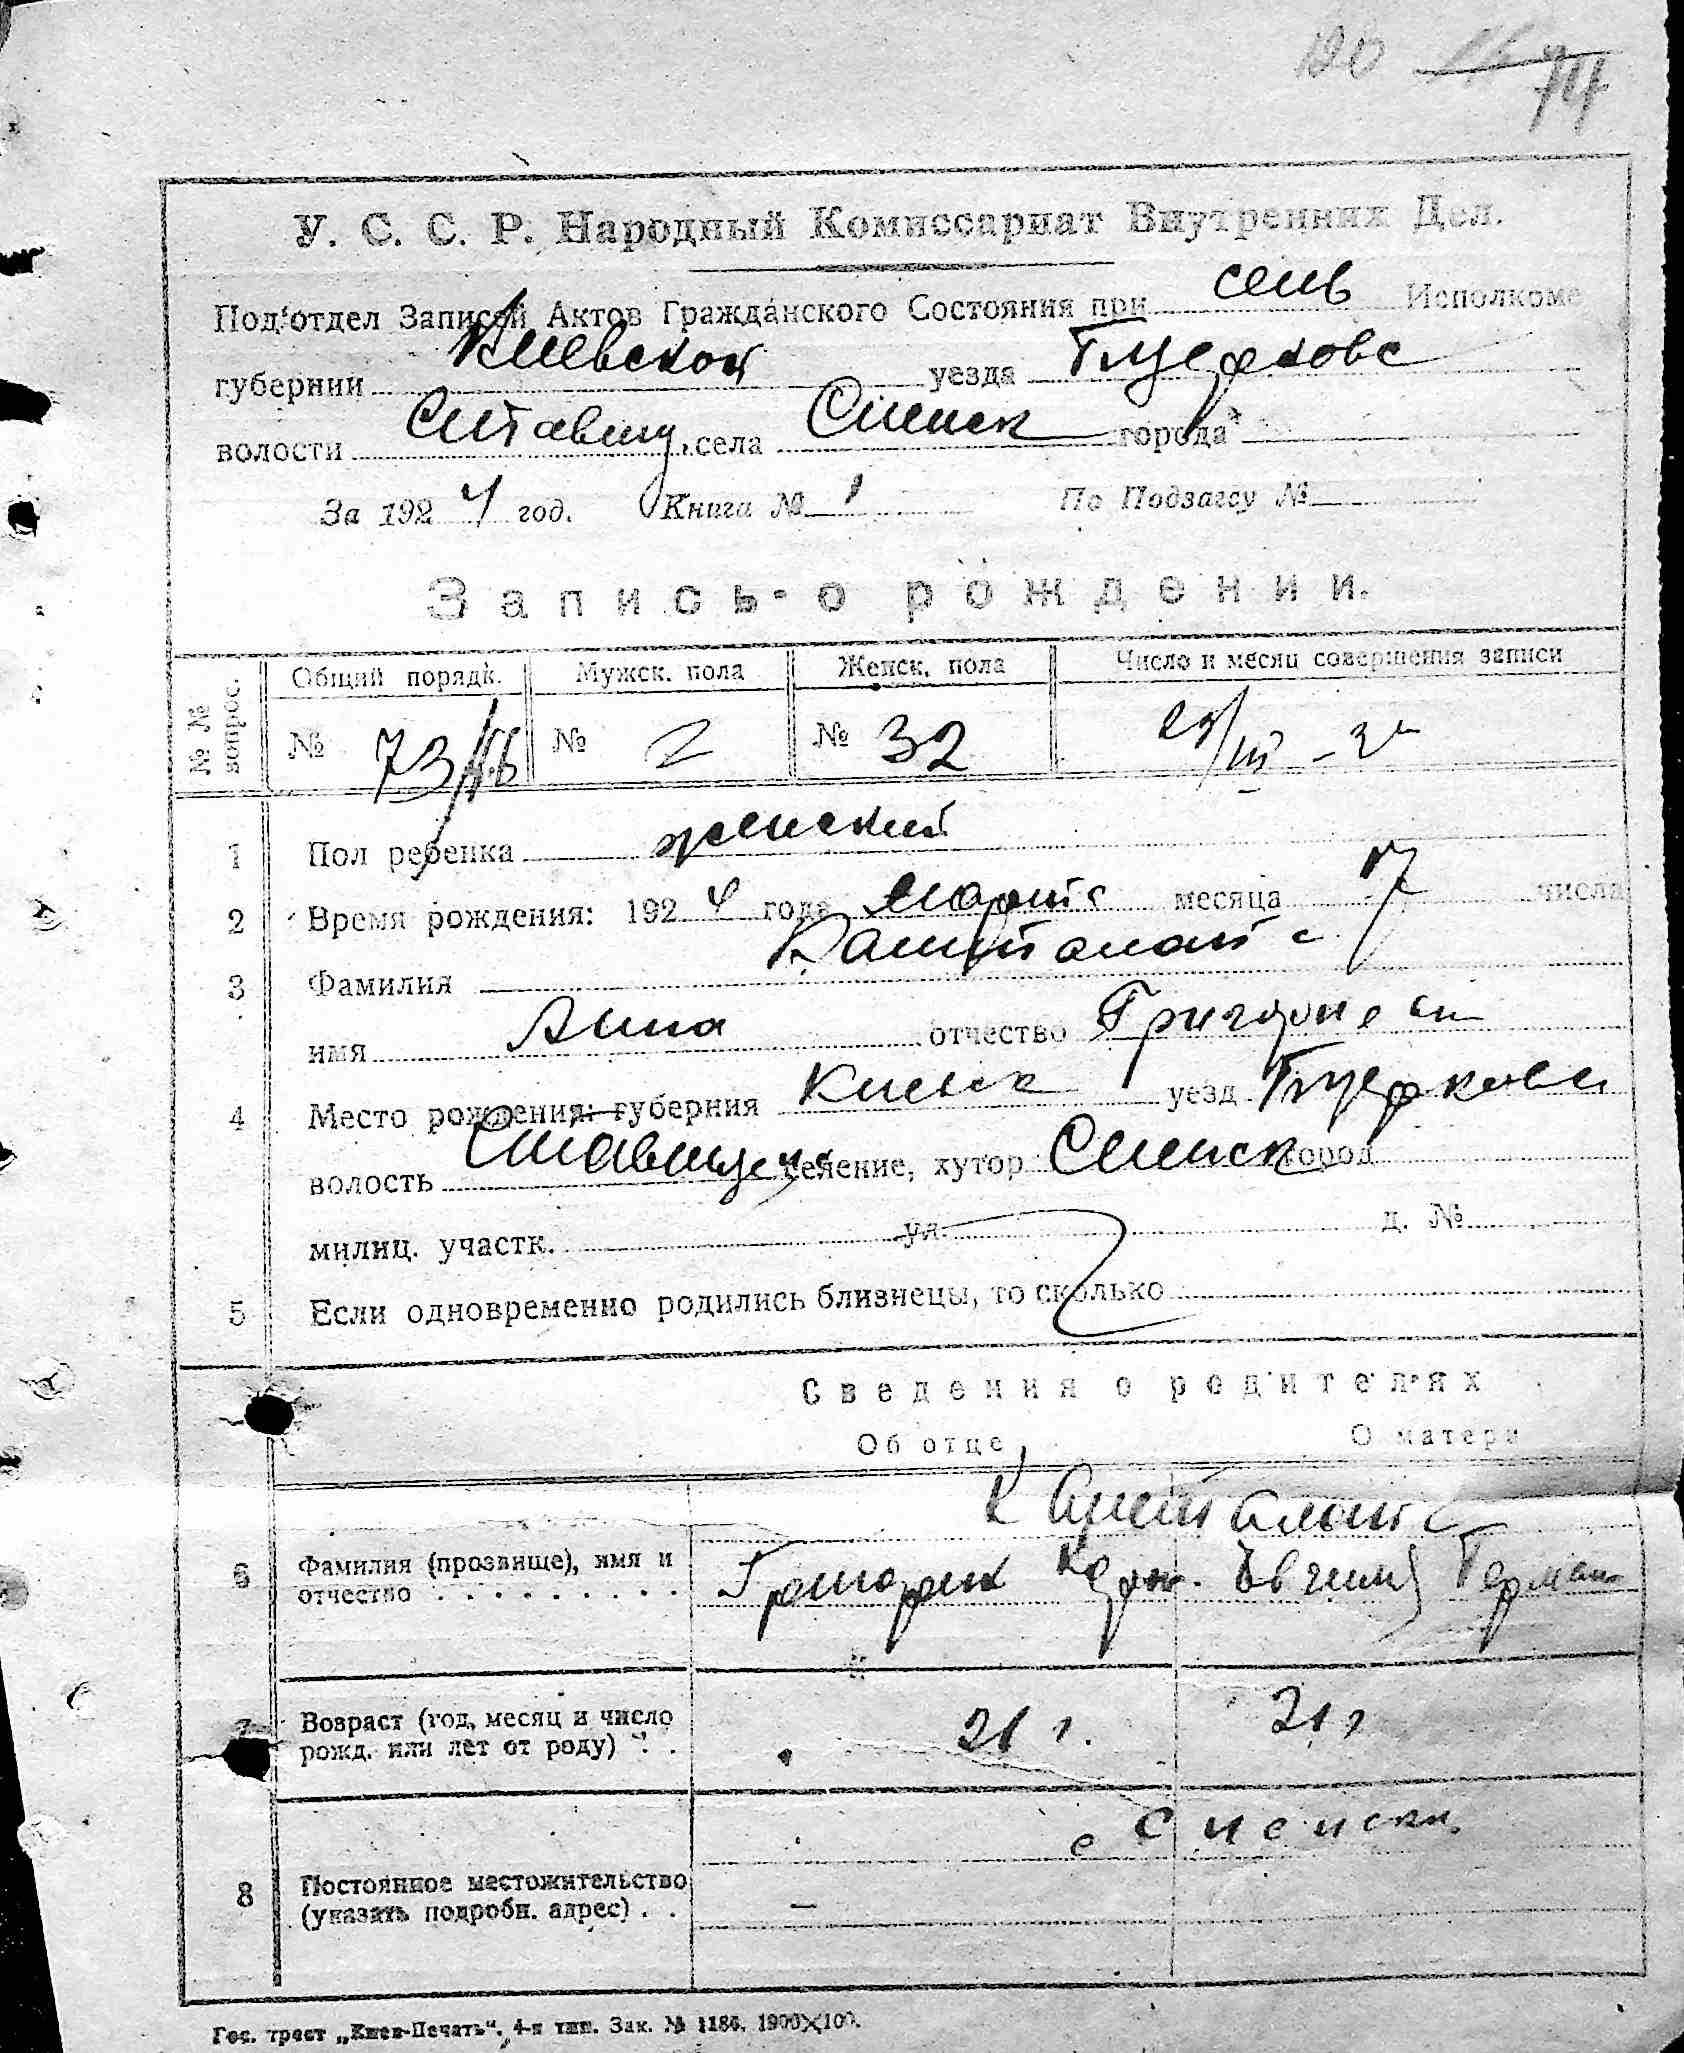 120 74
У. С. С. Р. Народный Комиссариат Внутренних Дел.
Под'отдел Записей Актов Гражданского Состояния при сель Исполкоме
губернии Киевской уезда Бцерковс
волости Ставищ, села города
За 1924 год. Книга № 1 По Подзагсу №
Запись о рождении.
№ № вопрос. Общий порядк. Мужск. пола Женск. пола Число и месяц совершения записи
№ 73 № № 32
1 Пол ребенка женский
2 Время рождения: 1924 года марта месяца 17 числа
3 Фамилия
имя Анна отчество Григорие
4 Место рождения: губерния Киевск уезд Бцерковс
волость Ставище селение, хутор город
милиц. участк. ул. д. №
5 Если одновременно родились близнецы, то сколько
Сведения о родителях
Об отце О матери
6 Фамилия (прозвище), имя и
отчество Григорий Евгения Герман
7 Возраст (год, месяц и число
рожд. или лет от роду) 21 г. 21 г
8 Постоянное местожительство
(указать подробн. адрес)
Гос. трест „Киев-Печать“, 4-я тип. Зак. № 1186. 1900×100.